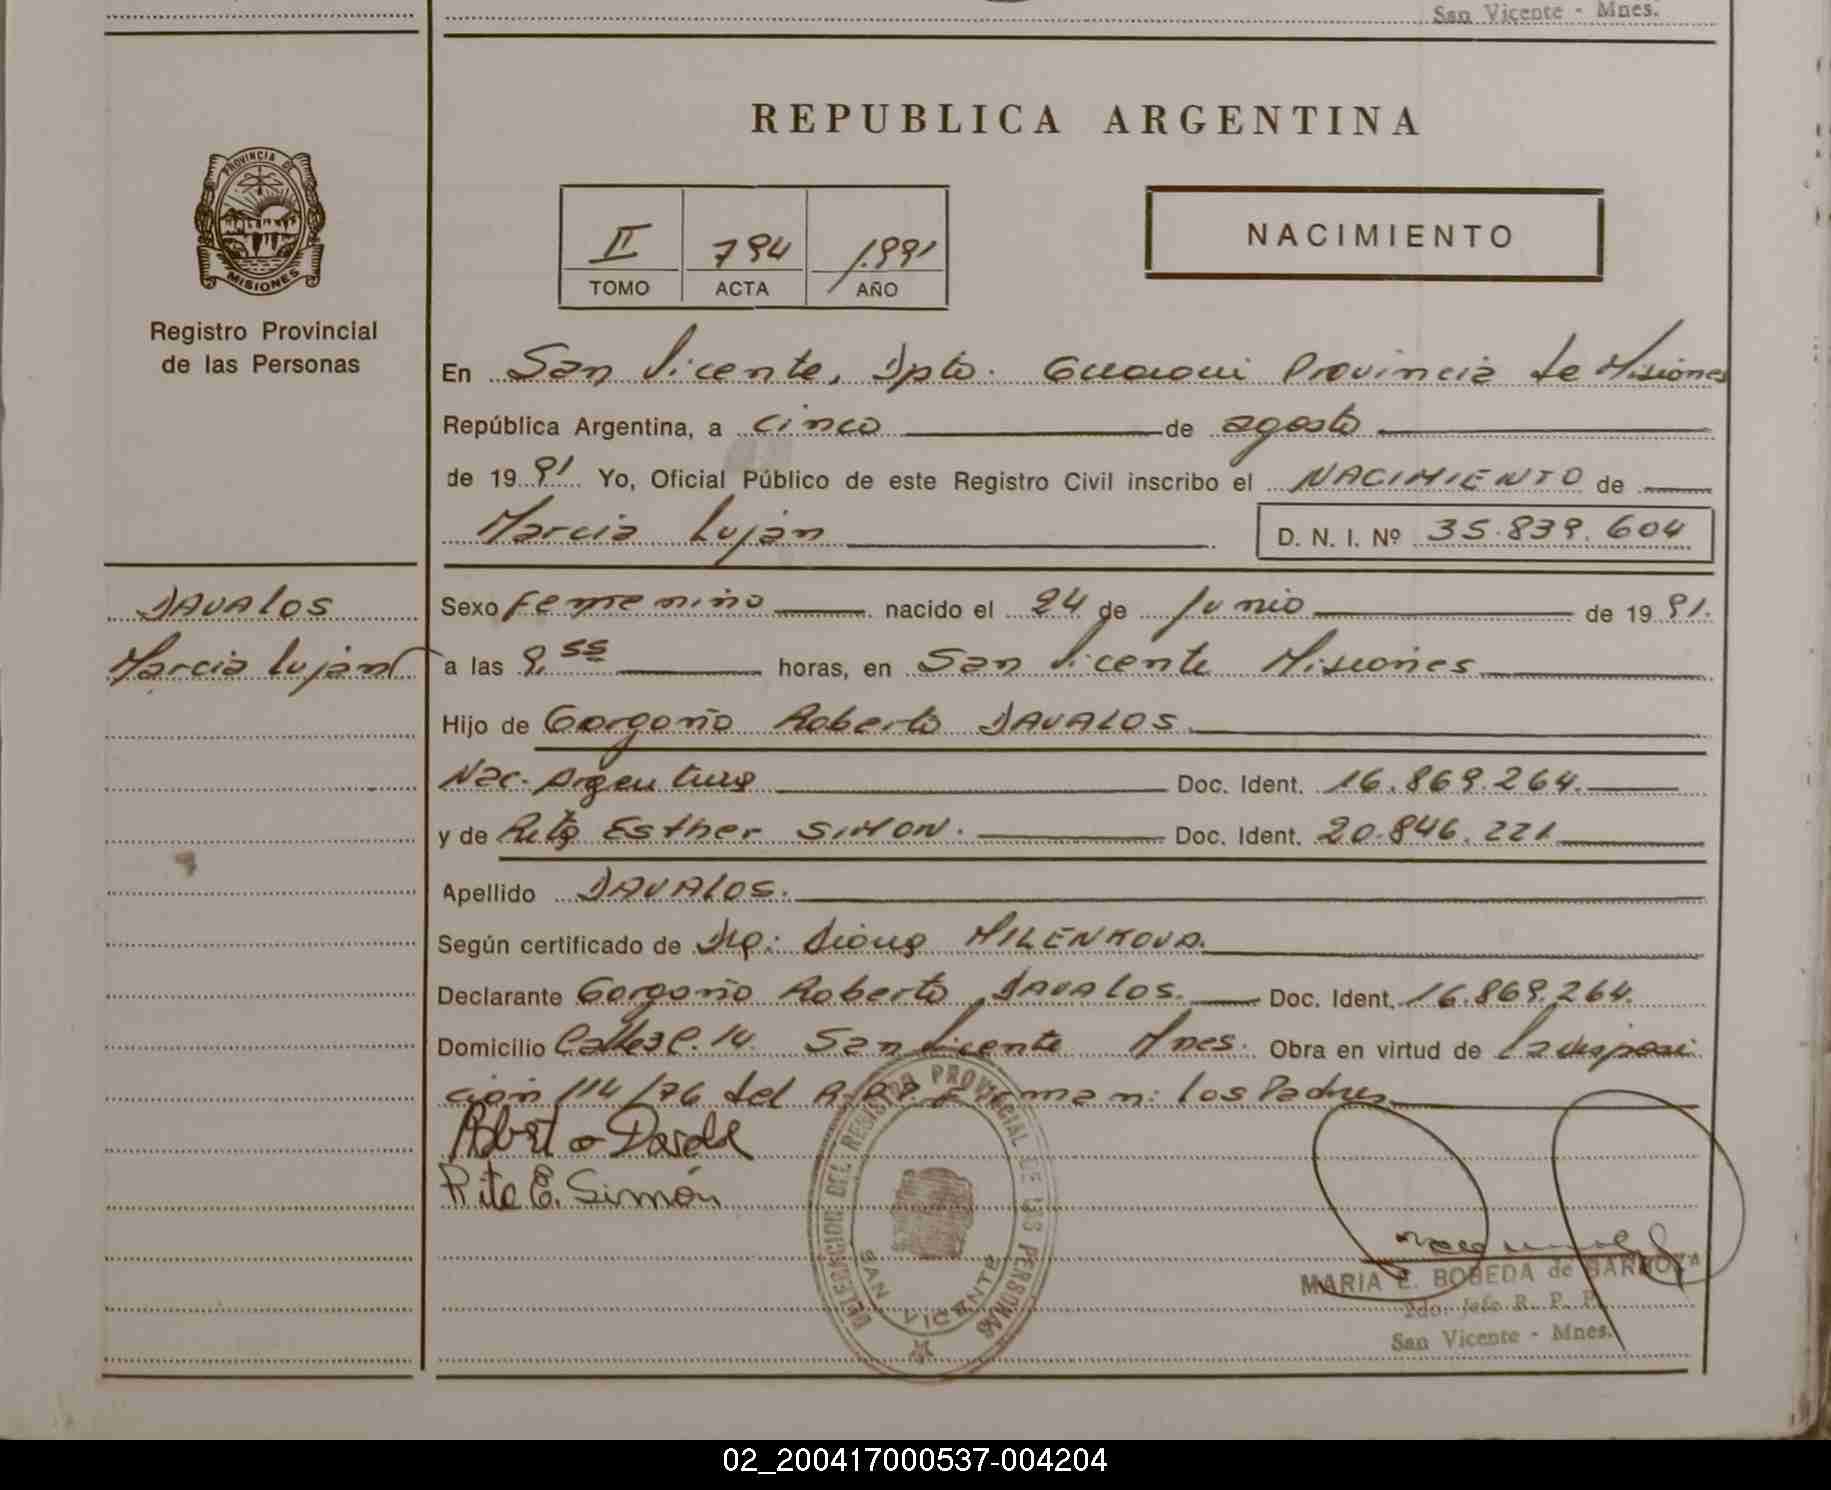 San Vicente - Mnes.
REPUBLICA ARGENTINA
PROVINCIA DE
MISIONES
Registro Provincial
de las Personas
II 794 1.991
TOMO ACTA AÑO
NACIMIENTO
En San Vicente, Dpto. Guaraní Provincia de Misiones
República Argentina, a cinco de agosto
de 1991 Yo, Oficial Público de este Registro Civil inscribo el NACIMIENTO de
Marcia Luján D. N. I. Nº 35.839.604
DAVALOS
Marcia Luján
Sexo femenino nacido el 24 de Junio de 1991.
a las 9.55 horas, en San Vicente Misiones
Hijo de Gorgonio Roberto DAVALOS
Nac. Argentina Doc. Ident. 16.869.264.
y de Rita Esther SIMON. Doc. Ident. 20.846.221
Apellido DAVALOS.
Según certificado de MILENKOVA.
Declarante Gorgonio Roberto DAVALOS. Doc. Ident. 16.869.264.
Domicilio San Vicente Mnes. Obra en virtud de la disposi
ción 114/76 del R.P.P. Firman: los Padres
Rita E. Simón
DELEGACION DEL REGISTRO PROVINCIAL DE LAS PERSONAS
SAN VICENTE
MARIA E. BOBEDA de BARBOZA
2do. Jefe R. P. P.
San Vicente - Mnes.
02_200417000537-004204